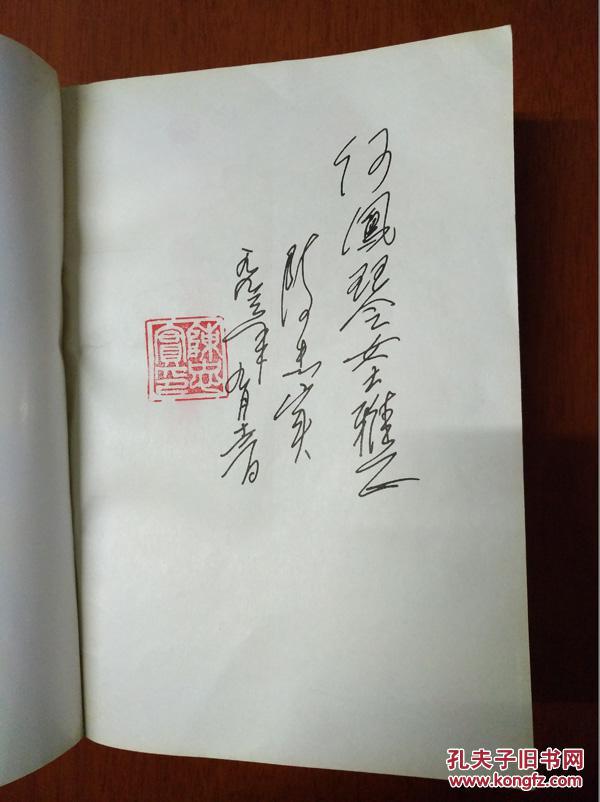 何鳳琴女士雅正
陈忠实
一九九三年九月
陳忠實印
孔夫子旧书网
www.kongfz.com